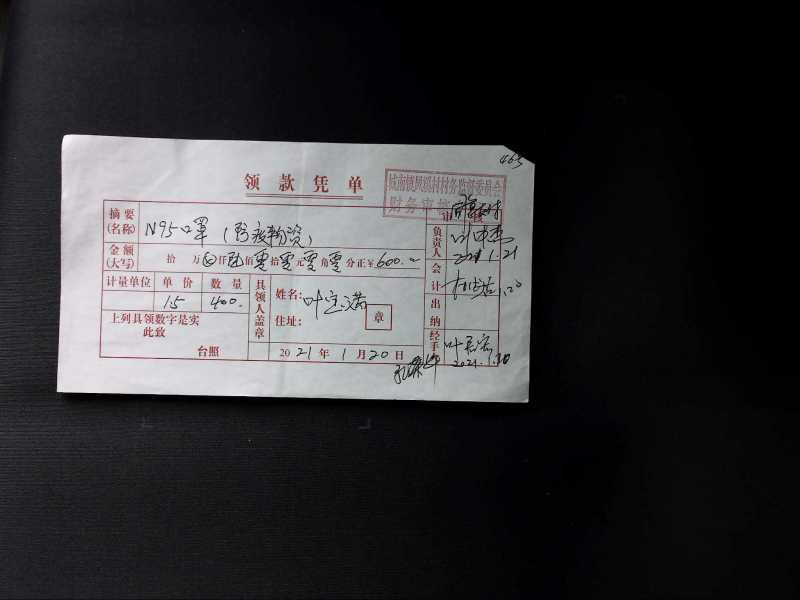 465
领款凭单
村务监督委员会
财务审核
审核
摘要(名称) N95口罩(防疫物资)
金额(大写) 拾 万 仟 陆 佰 零 拾 零 元 零 角 零 分正¥ 600.
计量单位 单价 数量
15 400.
上列具领数字是实
此致
台照
具领人盖章
姓名: 叶
住址:
章
2021年1月20日
负责人
2021.1.21
会计
1.20
出纳
经手 叶
2021.1.20